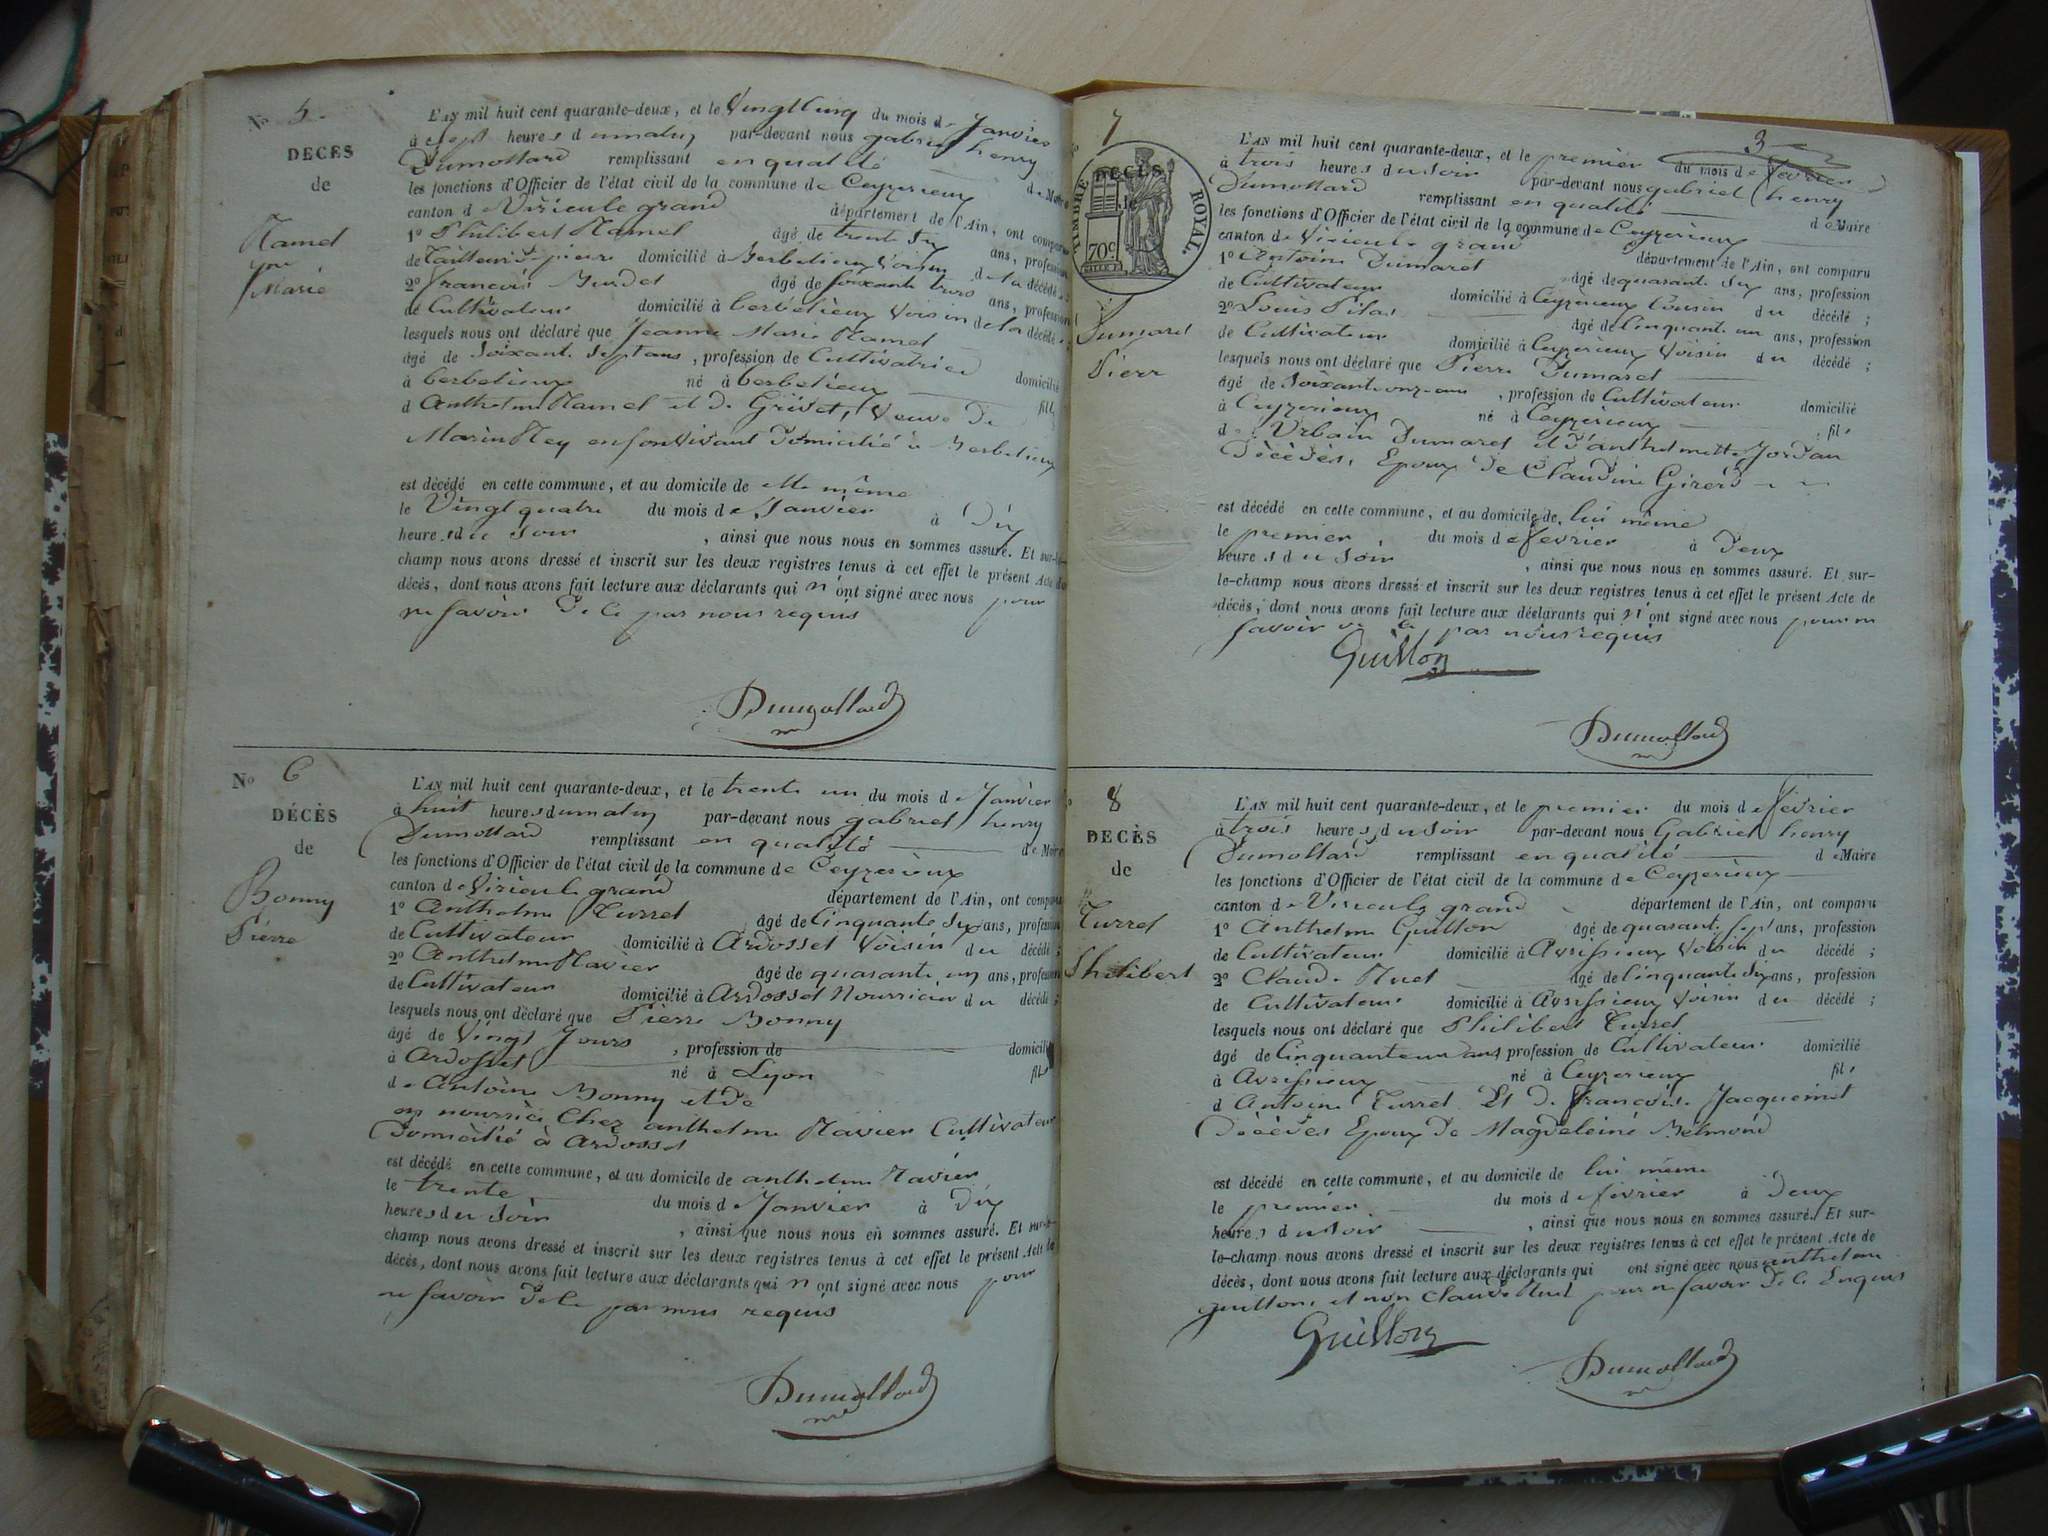 No 5.
DECÈS
de
Ramel
Marie
L'AN mil huit cent quarante-deux, et le Vingt Cinq du mois de Janvier
à sept heures du matin par-devant nous gabriel henry
Dumollard remplissant en qualité de Maire
les fonctions d'Officier de l'état civil de la commune de Ceyzerieux
canton de Virieu le grand département de l'Ain, ont comparu
1o Philibert Ramel âgé de trente six ans, profession
de Tailleur de pierre domicilié à Berbelieux Voisin de la décédée
2o francois Burdet âgé de soixante trois ans, profession
de Cultivateur domicilié à berbelieux Voisin de la décédée
lesquels nous ont déclaré que Jeanne Marie Ramel
âgé de Soixante Sept ans, profession de Cultivatrice domicilié
à berbelieux né à berbelieux fille
d Anthelme Ramel et de Grivet, Veuve De
Marin Rey en son Vivant Domicilié à Berbelieux
est décédé en cette commune, et au domicile de elle même
le Vingt quatre du mois de Janvier à Dix
heures du soir, ainsi que nous nous en sommes assuré. Et sur-le-
champ nous avons dressé et inscrit sur les deux registres tenus à cet effet le présent Acte de
décès, dont nous avons fait lecture aux déclarants qui n'ont signé avec nous pour
ne savoir De ce par nous requis
Dumollard
No 6
DÉCÈS
de
Bonny
Pierre
L'AN mil huit cent quarante-deux, et le trente un du mois de Janvier
à huit heures du matin par-devant nous gabriel henry
Dumollard remplissant en qualité de Maire
les fonctions d'Officier de l'état civil de la commune de Ceyzerieux
canton de Virieu le grand département de l'Ain, ont comparu
1o Anthelme Turrel âgé de Cinquante Six ans, profession
de Cultivateur domicilié à Ardosset Voisin du décédé ;
2o Anthelme Ravier âgé de quarante un ans, profession
de Cultivateur domicilié à Ardosset Nourricier du décédé ;
lesquels nous ont déclaré que Pierre Bonny
âgé de Vingt Jours, profession de domicilié
à Ardosset né à Lyon fils
de Antoine Bonny et de
en nourrice Chez anthelme Ravier Cultivateur
Domicilié à Ardosset
est décédé en cette commune, et au domicile de anthelme Ravier
le trente du mois de Janvier à Dix
heures du soir, ainsi que nous nous en sommes assuré. Et sur-le-
champ nous avons dressé et inscrit sur les deux registres tenus à cet effet le présent Acte de
décès, dont nous avons fait lecture aux déclarants qui n ont signé avec nous pour
ne savoir De ce par nous requis
Dumollard
7
DECÈS
TIMBRE ROYAL.
70c
Dumaret
Pierr
3
L'AN mil huit cent quarante-deux, et le premier du mois de février
à trois heures du soir par-devant nous gabriel henry
Dumollard remplissant en qualité de Maire
les fonctions d'Officier de l'état civil de la commune de Ceyzerieux
canton de Virieu le grand département de l'Ain, ont comparu
1o Antoine Dumaret âgé de quarante Six ans, profession
de Cultivateur domicilié à Ceyzerieux Cousin du décédé ;
2o Louis Pilat âgé de Cinquante un ans, profession
de Cultivateur domicilié à Ceyzerieux Voisin du décédé ;
lesquels nous ont déclaré que Pierre Dumaret
âgé de Soixante onze ans, profession de Cultivateur domicilié
à Ceyzerieux né à Ceyzerieux fils
de Urbain Dumaret et d'anthelmette Jordan
Décédés, Epoux De Claudine Girerd
est décédé en cette commune, et au domicile de lui même
le premier du mois de février à Deux
heures du soir, ainsi que nous nous en sommes assuré. Et sur-
le-champ nous avons dressé et inscrit sur les deux registres tenus à cet effet le présent Acte de
décès, dont nous avons fait lecture aux déclarants qui n'ont signé avec nous pour ne
savoir de ce par nous requis
Guillon
Dumollard
8
DECÈS
de
Turrel
Philibert
L'AN mil huit cent quarante-deux, et le premier du mois de février
à trois heures du soir par-devant nous Gabriel henry
Dumollard remplissant en qualité de Maire
les fonctions d'Officier de l'état civil de la commune de Ceyzerieux
canton de Virieu le grand département de l'Ain, ont comparu
1o Anthelme Guillon âgé de quarante Sept ans, profession
de Cultivateur domicilié à Avrissieux Voisin du décédé ;
2o Claude Ruet âgé de Cinquante Six ans, profession
de Cultivateur domicilié à Avrissieux Voisin du décédé ;
lesquels nous ont déclaré que Philibert Turrel
âgé de Cinquante un ans profession de Cultivateur domicilié
à Avrissieux né à Ceyzerieux fils
d Antoine Turrel Et De francoise Jacqueinet
Décédés Epoux De Magdeleine Belmond
est décédé en cette commune, et au domicile de lui même
le premier du mois de février à Deux
heures du soir, ainsi que nous nous en sommes assuré. Et sur-
le-champ nous avons dressé et inscrit sur les deux registres tenus à cet effet le présent Acte de
décès, dont nous avons fait lecture aux déclarants qui ont signé avec nous anthelme
guillon, et non Claude Ruet pour ne savoir De ce Enquis
Guillon
Dumollard